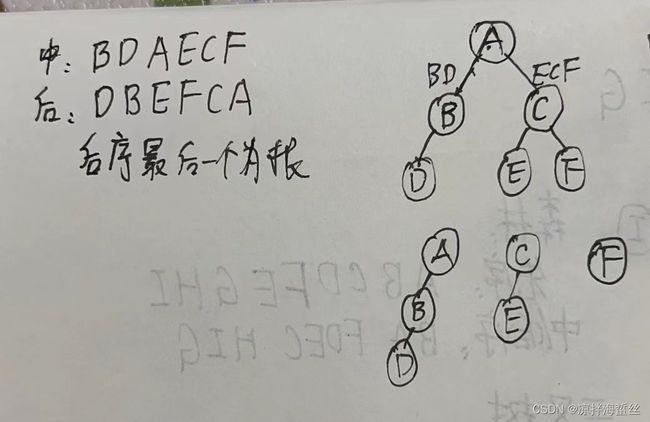 中: BDAECF
后: DBEFCA
后序最后一个为根
A
BD
ECF
B
C
D
E
F
A
C
F
B
E
D
CSDN @凉拌海蜇丝